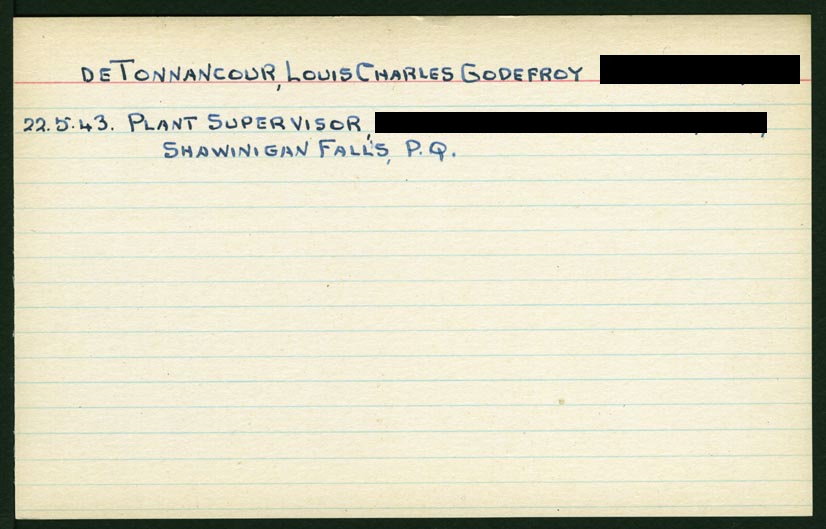 DETONNANCOUR, LOUIS CHARLES GODEFROY
22.5.43. PLANT SUPERVISOR,
SHAWINIGAN FALLS, P.Q.